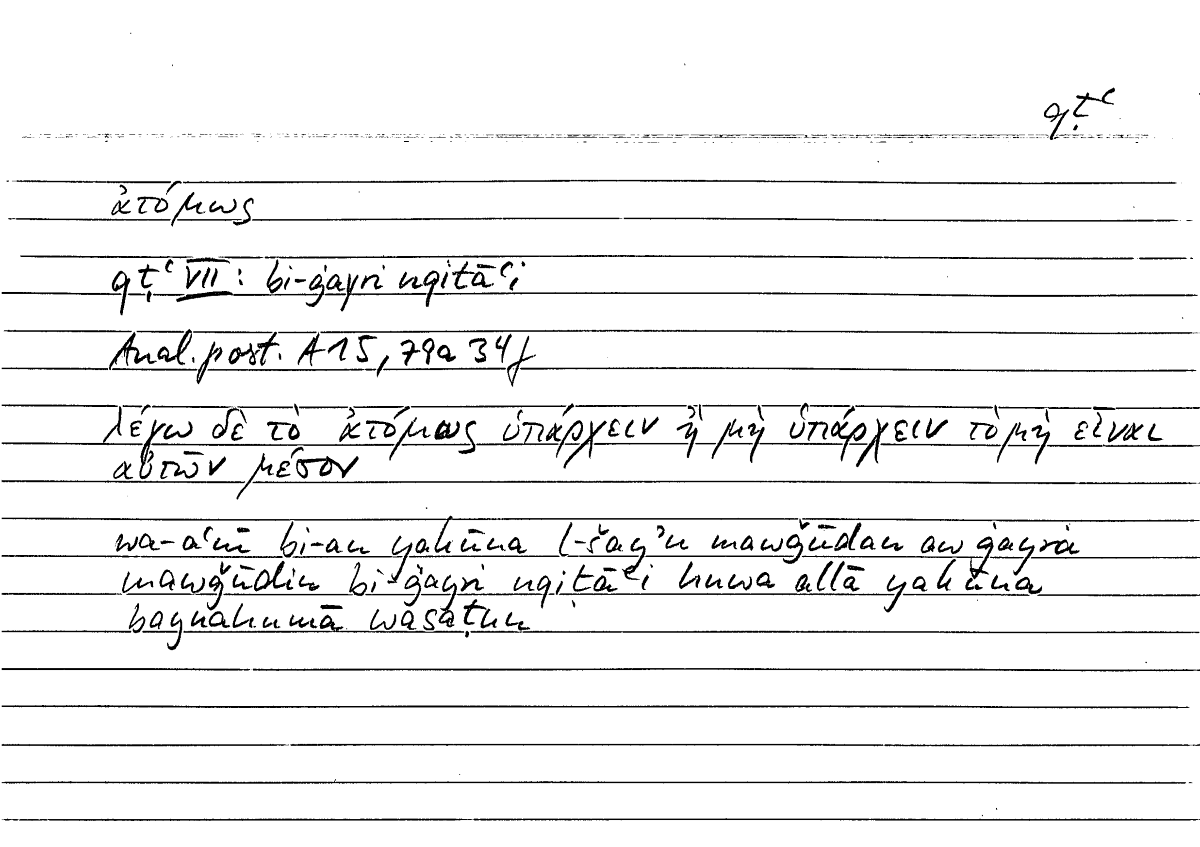 qṭʿ
ἀτόμως
qṭʿ VII: bi-ġayri nqitāʿi
Anal. post. A 15, 79a 34f
λέγω δὲ τὸ ἀτόμως ὑπάρχειν ἢ μὴ ὑπάρχειν τὸ μὴ εἶναι
αὐτῶν μέσον
wa-aʿnī bi-an yakūna l-šayʾu mawǧūdan aw ġayra
mawǧūdin bi-ġayri nqiṭāʿi huwa allā yakūna
baynahumā wasaṭun